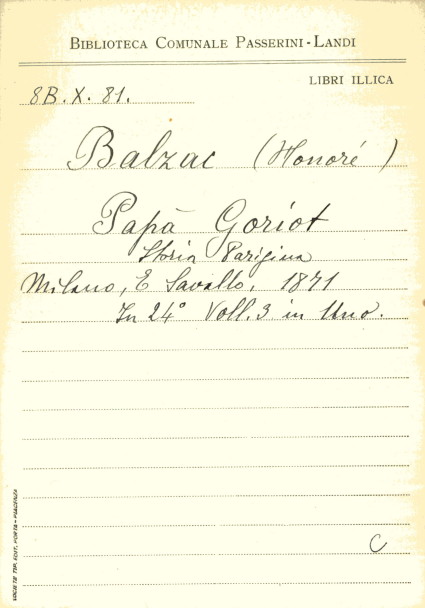 BIBLIOTECA COMUNALE PASSERINI-LANDI
LIBRI ILLICA
8B. X. 81.
Balzac (Honoré)
Papà Goriot
Storia Parigina
Milano, E Savallo, 1871
In 24° Voll. 3 in Uno.
C
SOCIETÀ TIP. EDIT. PORTA - PIACENZA